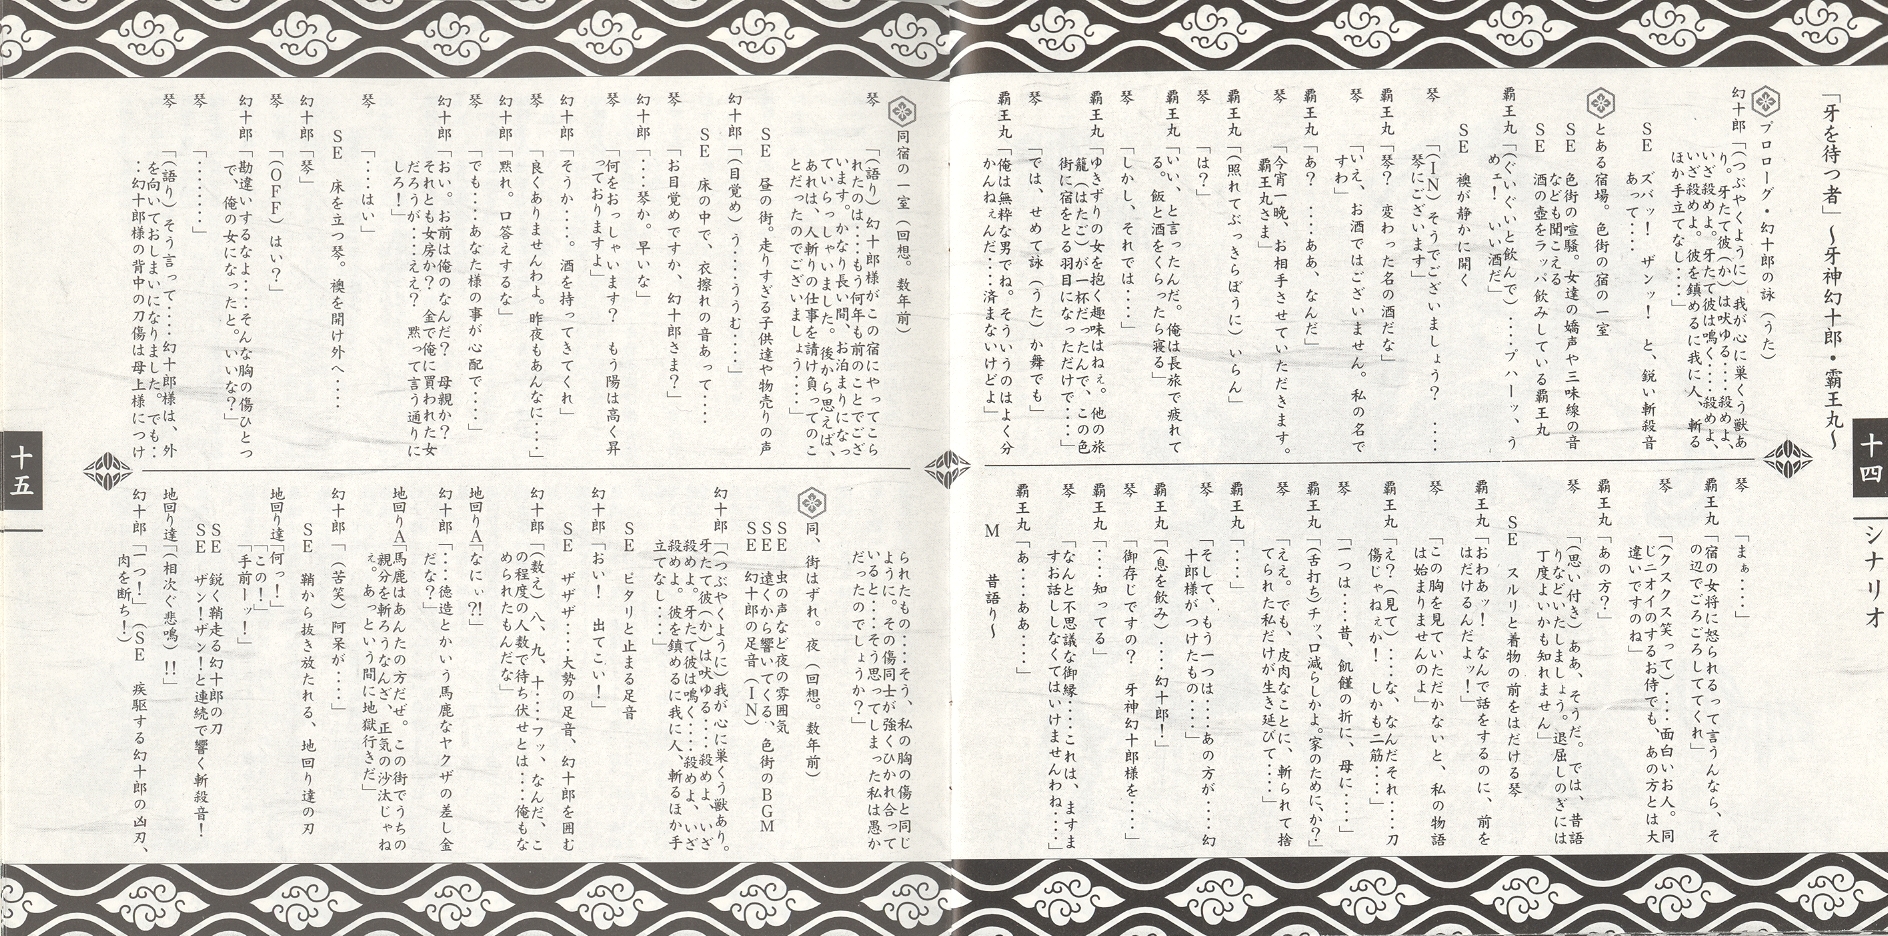 「牙を待つ者」～牙神幻十郎・覇王丸～
プロローグ・幻十郎の詠（うた）
幻十郎「（つぶやくように）我が心に巣くう獣あ
り。牙たて彼（か）は吠ゆる‥‥殺めよ、
いざ殺めよ。牙たて彼は鳴く‥‥殺めよ、
いざ殺めよ。彼を鎮めるに我に人、斬る
ほか手立てなし‥‥」
SE　ズバッ！　ザンッ！　と、鋭い斬殺音
あって‥‥
とある宿場。色街の宿の一室
SE　色街の喧騒。女達の嬌声や三味線の音
なども聞こえる
SE　酒の壺をラッパ飲みしている覇王丸
覇王丸「（ぐいぐいと飲んで）‥‥プハーッ、う
めェ！　いい酒だ」
SE　襖が静かに開く
琴　「（IN）そうでございましょう？　‥‥
琴にございます」
覇王丸「琴？　変わった名の酒だな」
琴　「いえ、お酒ではございません。私の名で
すわ」
覇王丸「あ？　‥‥ああ、なんだ」
琴　「今宵一晩、お相手させていただきます。
覇王丸さま」
覇王丸「（照れてぶっきらぼうに）いらん」
琴　「は？」
覇王丸「いい、と言ったんだ。俺は長旅で疲れて
る。飯と酒をくらったら寝る」
琴　「しかし、それでは‥‥」
覇王丸「ゆきずりの女を抱く趣味はねぇ。他の旅
籠（はたご）が一杯だったんで、この色
街に宿をとる羽目になっただけで‥‥」
琴　「では、せめて詠（うた）か舞でも」
覇王丸「俺は無粋な男でね。そういうのはよく分
かんねぇんだ‥‥済まないけどよ」
琴　「まぁ‥‥」
覇王丸「宿の女将に怒られるって言うんなら、そ
の辺でごろごろしててくれ」
琴　「（クスクス笑って）‥‥面白いお人。同
じニオイのするお侍でも、あの方とは大
違いですのね」
覇王丸「あの方？」
琴　「（思い付き）ああ、そうだ。では、昔語
りなどいたしましょう。退屈しのぎには
丁度よいかも知れません」
SE　スルリと着物の前をはだける琴
覇王丸「おわあッ！　なんで話をするのに、前を
はだけるんだよッ！」
琴　「この胸を見ていただかないと、私の物語
は始まりませんのよ」
覇王丸「え？（見て）‥‥な、なんだそれ‥‥刀
傷じゃねぇか！　しかも二筋‥‥」
琴　「一つは‥‥昔、飢饉の折に、母に‥‥」
覇王丸「（舌打ち）チッ、口減らしかよ。家のためにか？」
琴　「ええ。でも、皮肉なことに、斬られて捨
てられた私だけが生き延びて‥‥」
覇王丸「‥‥」
琴　「そして、もう一つは‥‥あの方が‥‥幻
十郎様がつけたもの‥‥」
覇王丸「（息を飲み）‥‥幻十郎！」
琴　「御存じですの？　牙神幻十郎様を‥‥」
覇王丸「‥‥知ってる」
琴　「なんと不思議な御縁‥‥これは、ますま
すお話ししなくてはいけませんわね‥‥」
覇王丸「あ‥‥ああ‥‥」
M　昔語り～
十四
シナリオ
同宿の一室（回想。数年前）
琴　「（語り）幻十郎様がこの宿にやってこら
れたのは‥‥もう何年も前のことでござ
います。かなり長い間、お泊まりになっ
ていらっしゃいました。後から思えば、
あれは、人斬りの仕事を請け負ってのこ
とだったのでございましょう‥‥」
SE　昼の街。走りすぎる子供達や物売りの声
幻十郎「（目覚め）う‥‥ううむ‥‥」
SE　床の中で、衣擦れの音あって‥‥
琴　「お目覚めですか、幻十郎さま？」
幻十郎「‥‥琴か。早いな」
琴　「何をおっしゃいます？　もう陽は高く昇
っておりますよ」
幻十郎「そうか‥‥。酒を持ってきてくれ」
琴　「良くありませんわよ。昨夜もあんなに‥‥」
幻十郎「黙れ。口答えするな」
琴　「でも‥‥あなた様の事が心配で‥‥」
幻十郎「おい。お前は俺のなんだ？　母親か？
それとも女房か？　金で俺に買われた女
だろうが‥‥ええ？　黙って言う通りに
しろ！」
琴　「‥‥はい」
SE　床を立つ琴。襖を開け外へ‥‥
幻十郎「琴」
琴　「（OFF）はい？」
幻十郎「勘違いするなよ‥‥そんな胸の傷ひとつ
で、俺の女になったと。いいな？」
琴　「‥‥‥‥」
琴　「（語り）そう言って‥‥幻十郎様は、外
を向いておしまいになりました。でも‥
‥幻十郎様の背中の刀傷は母上様につけ
られたもの‥‥そう、私の胸の傷と同じ
ように。その傷同士が強くひかれ合って
いると‥‥そう思ってしまった私は愚か
だったのでしょうか？」
同、街はずれ。夜（回想。数年前）
SE　虫の声など夜の雰囲気
SE　遠くから響いてくる、色街のBGM
SE　幻十郎の足音（IN）
幻十郎「（つぶやくように）我が心に巣くう獣あり。
牙たて彼（か）は吠ゆる‥‥殺めよ、いざ
殺めよ。牙たて彼は鳴く‥‥殺めよ、いざ
殺めよ。彼を鎮めるに我に人、斬るほか手
立てなし‥‥」
SE　ピタリと止まる足音
幻十郎「おい！　出てこい！」
SE　ザザザ‥‥大勢の足音、幻十郎を囲む
幻十郎「（数え）八、九、十‥‥フッ、なんだ、こ
の程度の人数で待ち伏せとは‥‥俺もな
められたもんだな」
地回りA「なにぃ?!」
幻十郎「‥‥徳造とかいう馬鹿なヤクザの差し金
だな？」
地回りA「馬鹿はあんたの方だぜ。この街でうちの
親分を斬ろうなんざ、正気の沙汰じゃね
ぇ。あっという間に地獄行きだ」
幻十郎「（苦笑）阿呆が‥‥」
SE　鞘から抜き放たれる、地回り達の刃
地回り達「何っ！」
「この！」
「手前ーッ！」
SE　鋭く鞘走る幻十郎の刀
SE　ザン！ザン！と連続で響く斬殺音！
地回り達「（相次ぐ悲鳴）!!」
幻十郎「一つ！」（SE　疾駆する幻十郎の凶刃、
肉を断ち！）
十五